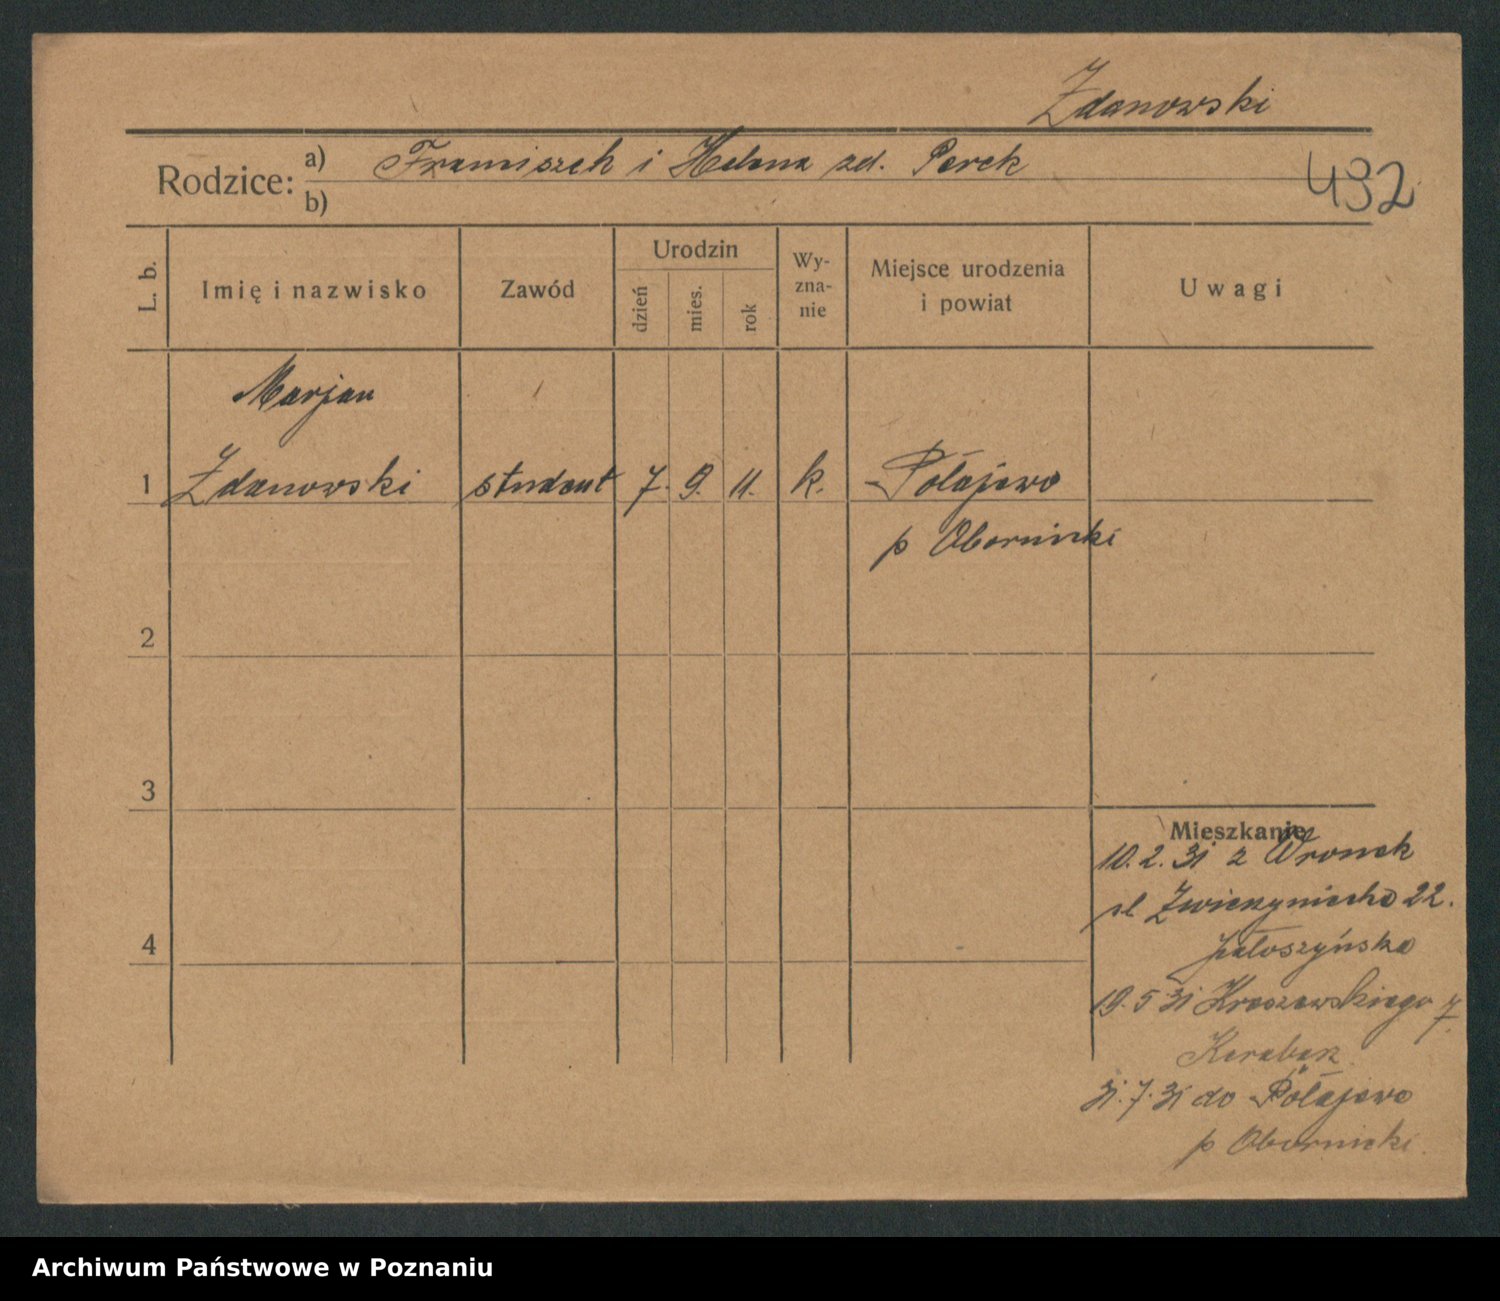 Zdanowski
Rodzice: a) Franciszek i Helena zd. Perek
b)
432
L. b.
Imię i nazwisko
Zawód
Urodzin
dzień
mies.
rok
Wy-
zna-
nie
Miejsce urodzenia
i powiat
Uwagi
Marjan
1 Zdanowski student 7. 9. 11. k. Połajewo
p Obornicki
2
3
4
Mieszkanie
10.2.31 z Wronek
ul Zwierzyniecka 22.
19.5 31 Kraszewskiego 7.
31.7.31 do Połajewo
p Obornicki.
Archiwum Państwowe w Poznaniu